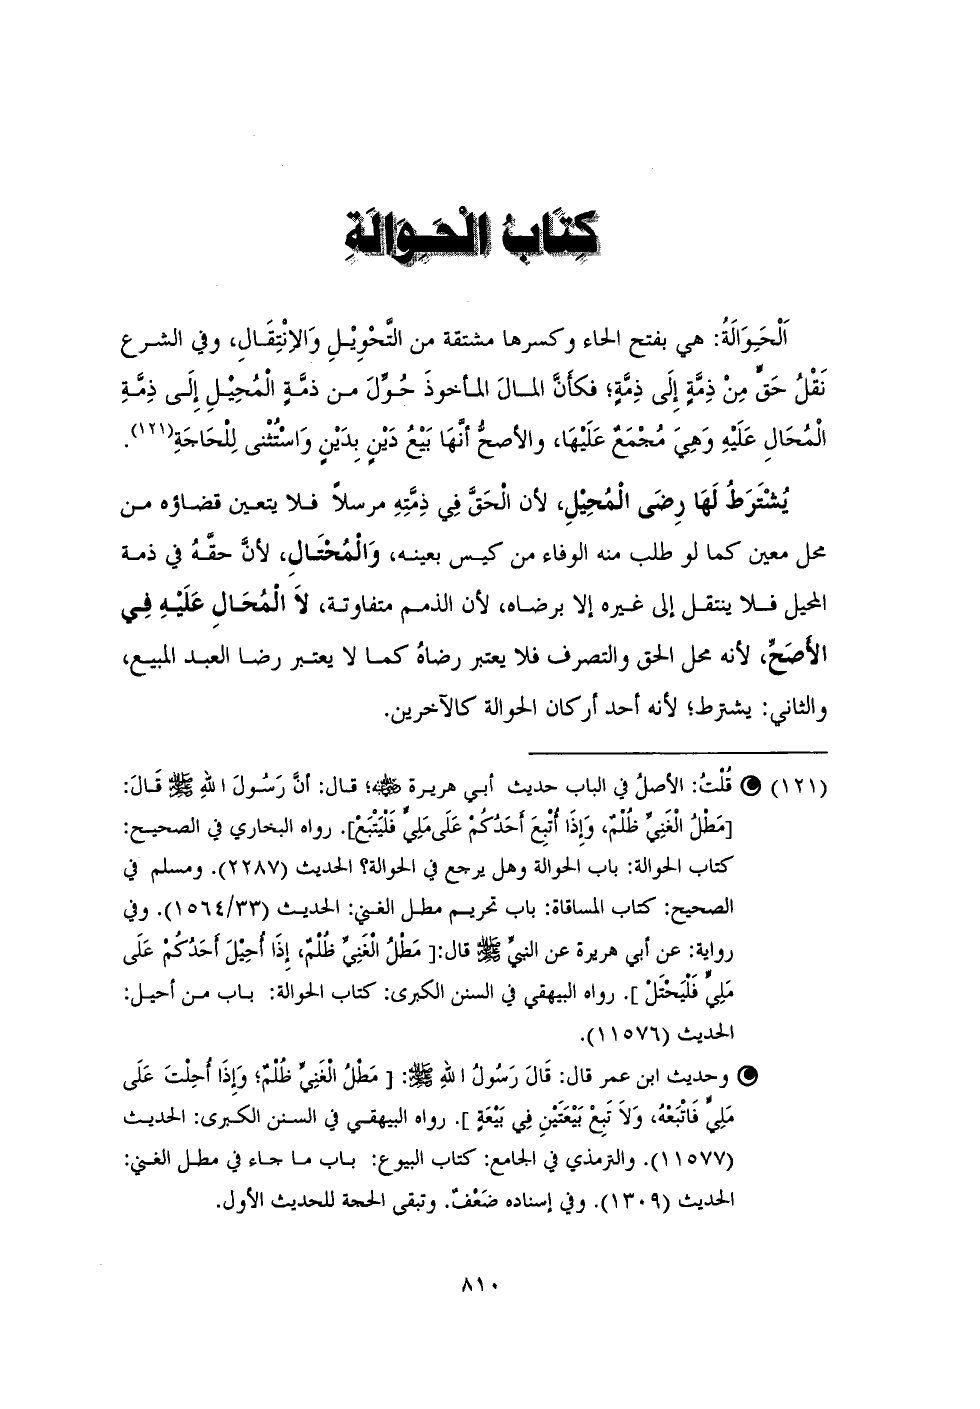 كِتَابُ الْحَوَالَةِ
اَلْحَوَالَةُ: هي بفتح الحاء وكسرها مشتقة من التَّحْوِيْلِ وَالإِنْتِقَالِ، وفي الشرع
نَقْلُ حَقٍّ مِنْ ذِمَّةٍ إِلَى ذِمَّةٍ؛ فكأَنَّ المال المأخوذَ حُوِّلَ من ذمَّةِ الْمُحِيْلِ إِلَى ذِمَّةِ
الْمُحَالِ عَلَيْهِ وَهِيَ مُجْمَعٌ عَلَيْهَا، والأصحُّ أنَّهَا بَيْعُ دَيْنٍ بِدَيْنٍ وَاسْتُثْنى لِلْحَاجَةِ(١٢١).
يُشْتَرَطُ لَهَا رِضَى الْمُحِيْلِ، لأن الْحَقَّ فِي ذِمَّتِهِ مرسلاً فلا يتعين قضاؤه من
محل معين كما لو طلب منه الوفاء من كيس بعينه، وَالْمُحْتَالِ، لأنَّ حقَّهُ في ذمة
المحيل فلا ينتقل إلى غيره إلا برضاه، لأن الذمم متفاوتة، لاَ الْمُحَالِ عَلَيْهِ فِي
الأَصَحِّ، لأنه محل الحق والتصرف فلا يعتبر رضاهُ كما لا يعتبر رضا العبد المبيع،
والثاني: يشترط؛ لأنه أحد أركان الحوالة كالآخرين.
(١٢١) قُلْتُ: الأصلُ في الباب حديث أبي هريرة ﵁؛ قال: أنَّ رَسُولَ اللهِ ﷺ قَالَ:
[مَطْلُ الْغَنِيِّ ظُلْمٌ، وَإِذَا أُتْبِعَ أَحَدُكُمْ عَلَى مَلِيٍّ فَلْيَتْبَعْ]. رواه البخاري في الصحيح:
كتاب الحوالة: باب الحوالة وهل يرجع في الحوالة؟ الحديث (٢٢٨٧). ومسلم في
الصحيح: كتاب المساقاة: باب تحريم مطل الغني: الحديث (١٥٦٤/٣٣). وفي
رواية: عن أبي هريرة عن النبيِّ ﷺ قال:[ مَطْلُ الْغَنِيِّ ظُلْمٌ، إِذَا أُحِيْلَ أَحَدُكُمْ عَلَى
مَلِيٍّ فَلْيَحْتَلْ ]. رواه البيهقي في السنن الكبرى: كتاب الحوالة: باب من أحيل:
الحديث (١١٥٧٦).
وحديث ابن عمر قال: قَالَ رَسُولُ اللهِ ﷺ: [ مَطْلُ الْغَنِيِّ ظُلْمٌ؛ وَإِذَا أُحِلْتَ عَلَى
مَلِيٍّ فَاتْبَعْهُ، وَلاَ تَبِعْ بَيْعَتَيْنِ فِي بَيْعَةٍ ]. رواه البيهقي في السنن الكبرى: الحديث
(١١٥٧٧). والترمذي في الجامع: كتاب البيوع: باب ما جاء في مطل الغني:
الحديث (١٣٠٩). وفي إسناده ضَعْفٌ. وتبقى الحجة للحديث الأول.
٨١٠